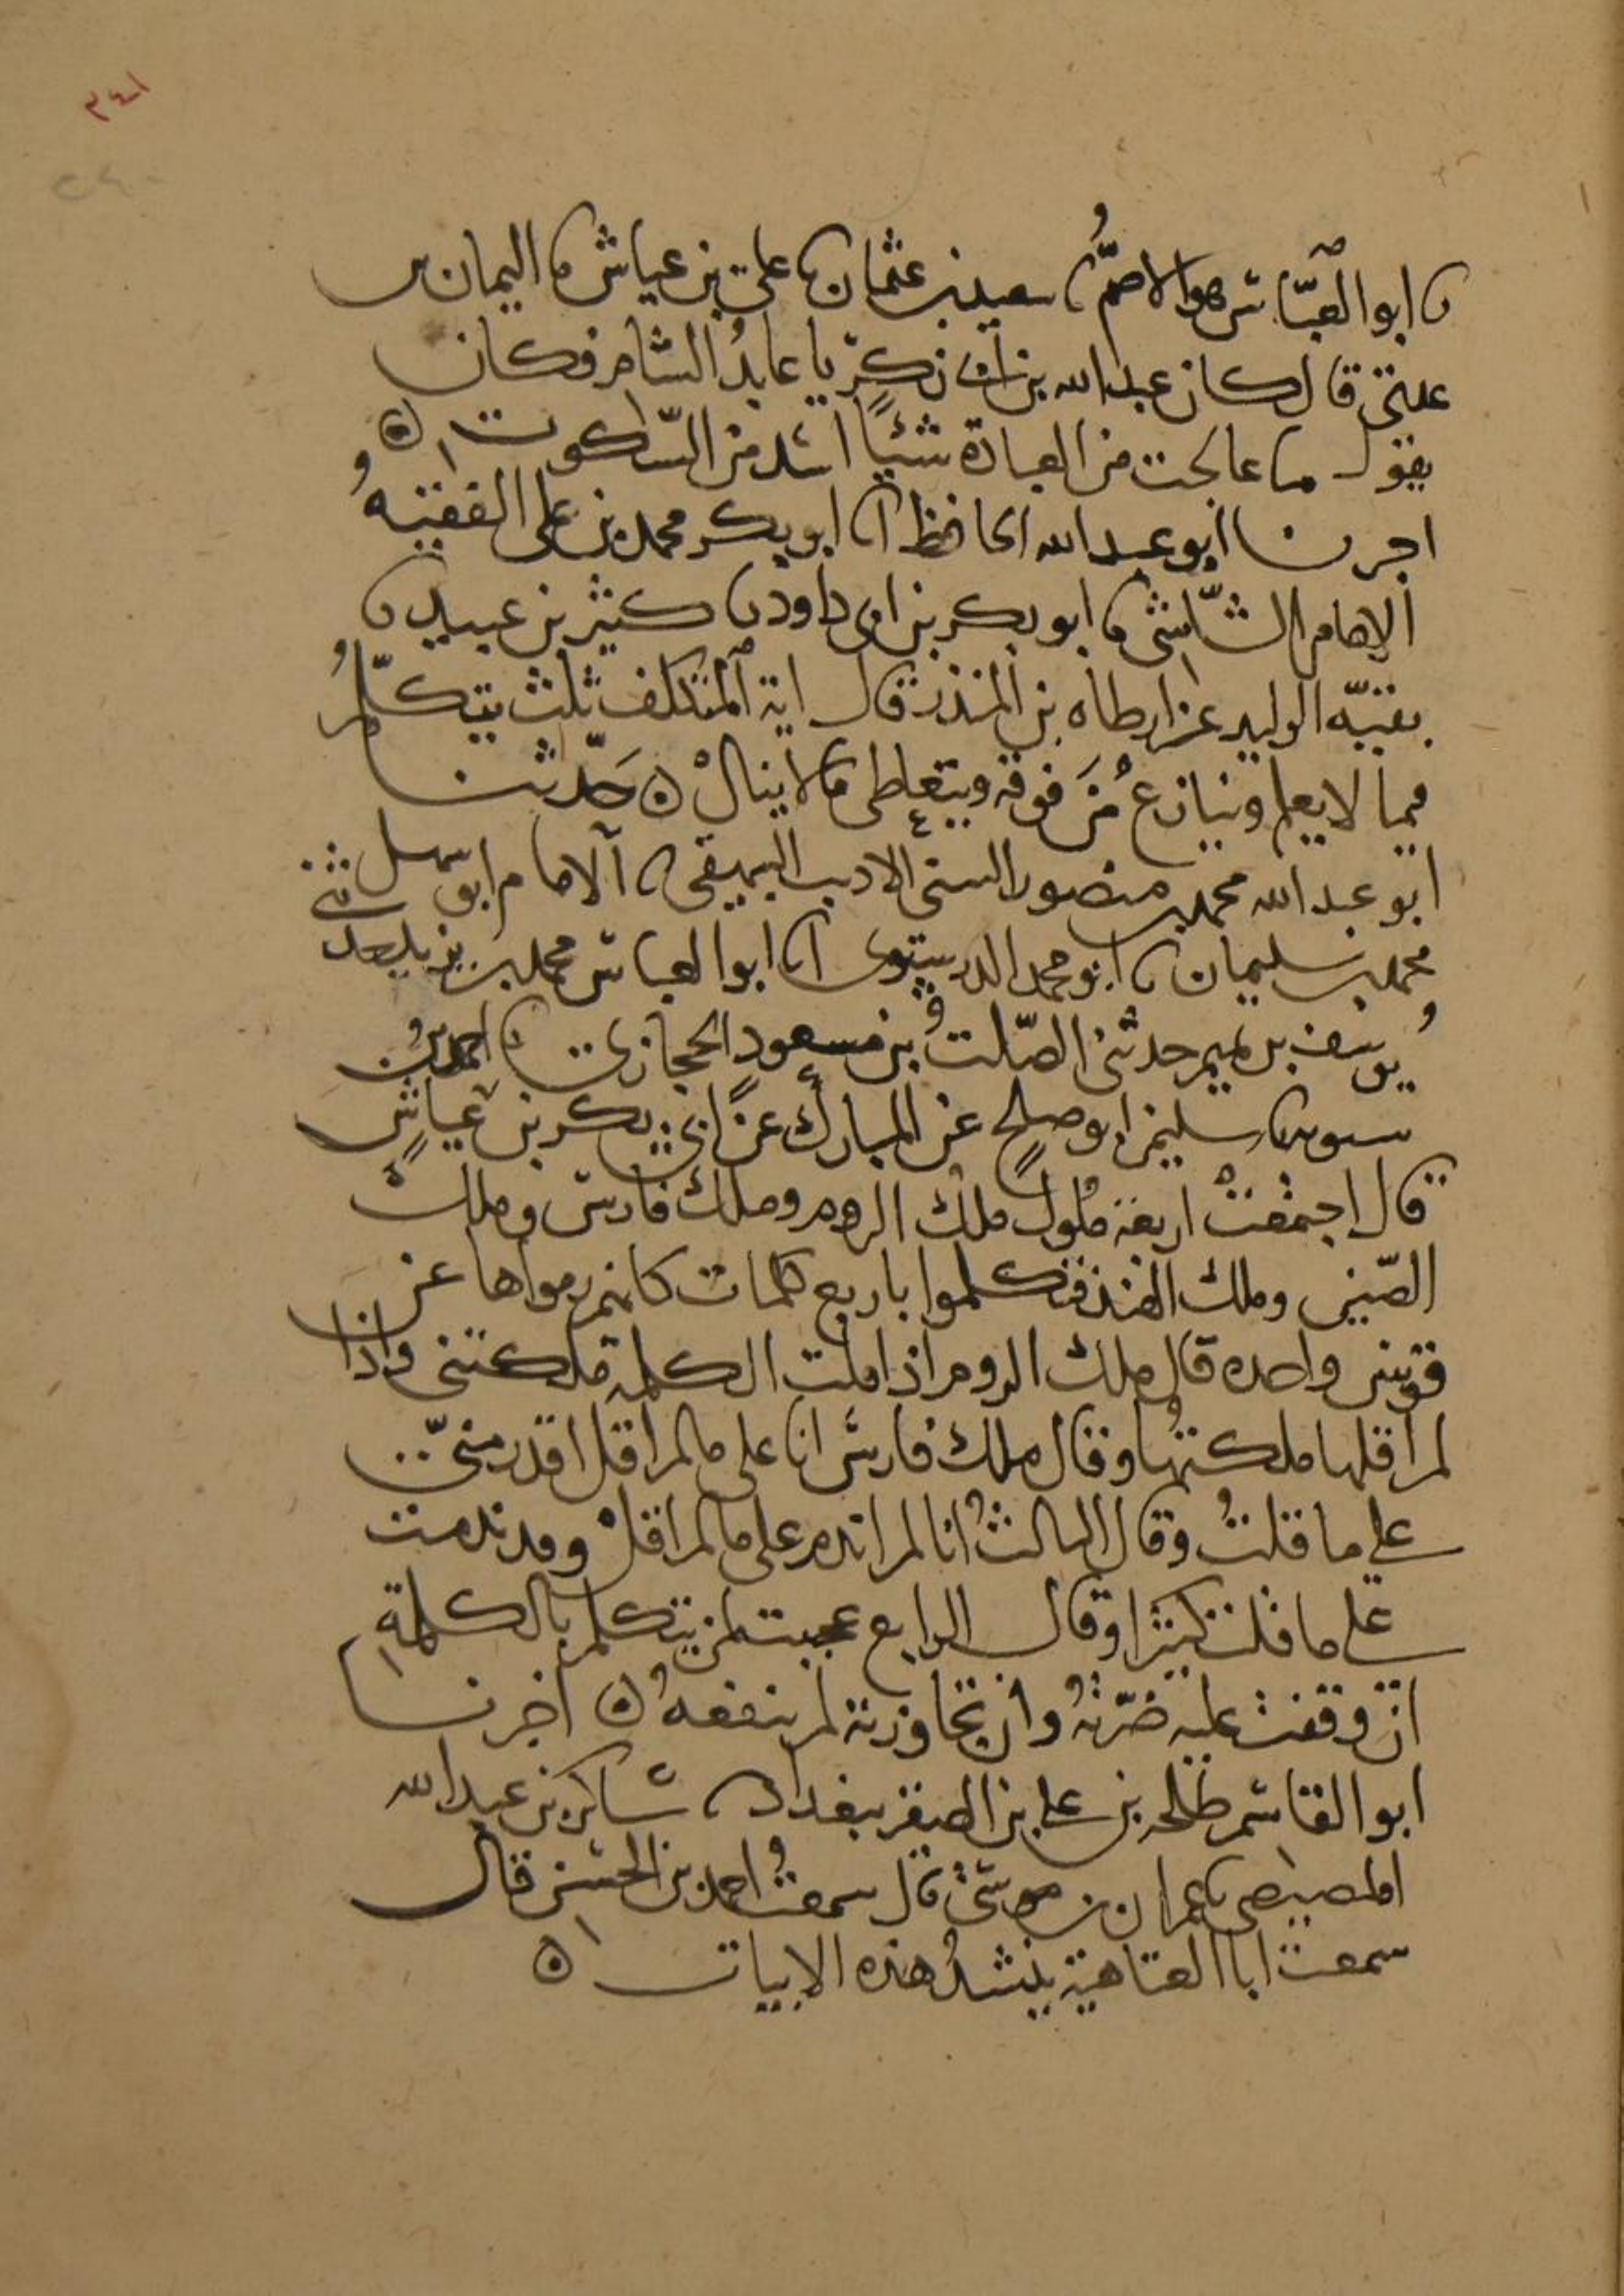 ٣٤١
٢٤٠
نا ابو العبّاس هو الاصمُّ نا سعيد بن عثمان نا علي بن عياش نا اليمان بن
عدي قال كان عبد الله بن ابي زكرّيا عابدُ الشام فكان
يقول ما عالجت من العبادة شيئًا اشد من السّكوت ۞
اخبرنا ابو عبد الله الحافظ انا ابو بكر محمد بن علي الفقيهُ
الامام الشّاشي نا ابو بكر بن ابي داود نا كثير بن عبيد نا
بقيّه الوليد عن ارطاه بن المنذر قال اية المتكلف ثلث يتكلّمُ
فيما لا يعلم وينازعُ مَن فوقه ويتعاطى ما لا ينالْ ۞ حَدّثنا
ابو عبد الله محمد بن منصور الستي الاديب البيهقي نا الامام ابو سهل
محمد بن سليمان نا ابو محمد الدرستوي انا ابو العباس محمد بن يزيد حدثني
يوسف بن تميم حدثني الصّلتُ بن مسعود الحجازي نا احمد بنُ
سبويه نا سليمن ابو صلحٍ عن المباركِ عن ابي بكر بن عياشٍ
قال اجمعتْ اربعة ملوك ملك الروم وملك فارس وملك
الصّين وملك الهند فتكلموا باربع كلمات كانهم رموا بها عن
قوس واحده قال ملك الروم اذا قلت الكلمة ملكتني واذا
لم اقلها ملكتُها وقال ملك فارس انا على ما لم اقل اقدر منيّ
على ما قلتُ وقال الثالثُ انا لم اندم على ما لم اقلْ وقد ندمت
على ما قلت كثيرا وقال الرابع عجبت لمن يتكلم بالكلمةِ
ان وقفت عليه ضرّتهُ وان تجاوزته لم ينفعهُ ۞ اخبرنا
ابو القاسم طلحه بن علي بن الصقر ببغداد نا شاكر بن عبد الله
المصيصي نا عمران بن موسى قال سمعتُ احمد بن الحسين قال
سمعت ابا العتاهية ينشدُ هذه الابيات ۞